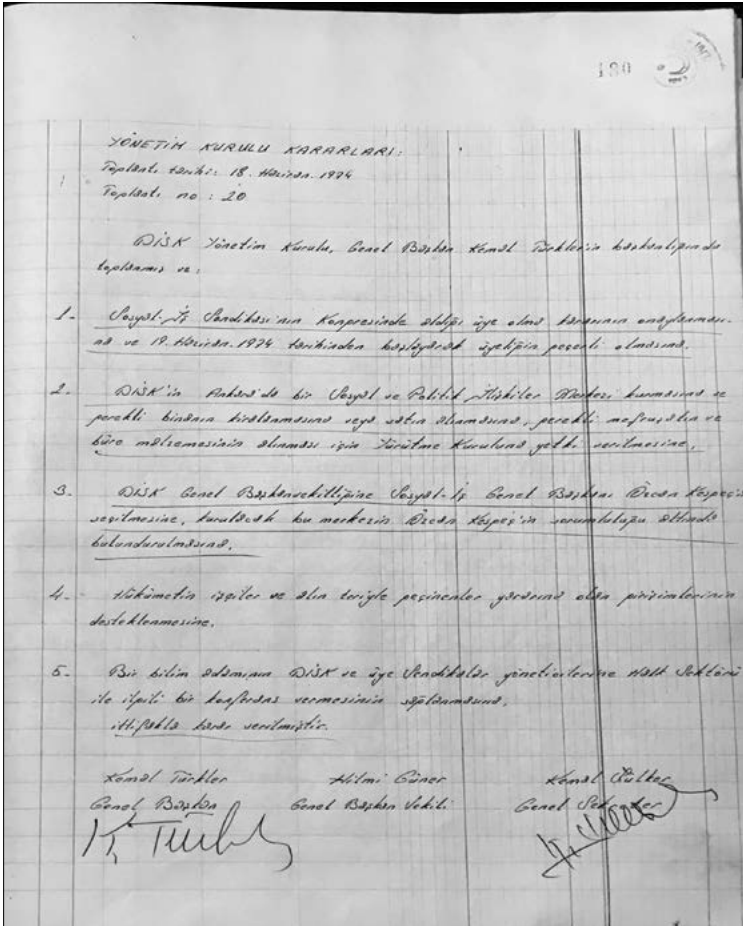 180
YÖNETİM KURULU KARARLARI:
Toplantı tarihi: 18. Haziran. 1974
Toplantı no : 20
DİSK Yönetim Kurulu, Genel Başkan Kemal Türkler'in başkanlığında
toplanmış ve:
1- Sosyal-İş Sendikası'nın Kongresinde aldığı üye olma kararının onaylanması-
na ve 19. Haziran. 1974 tarihinden başlayarak üyeliğin geçerli olmasına.
2- DİSK'in Ankara'da bir Sosyal ve Politik İlişkiler Merkezi kurmasına ve
gerekli binanın kiralanmasına veya satın alınmasına, gerekli mefruşatın ve
büro malzemesinin alınması için Yürütme Kuruluna yetki verilmesine,
3- DİSK Genel Başkanvekilliğine Sosyal-İş Genel Başkanı Özcan Kesgeç'in
seçilmesine, kurulacak bu merkezin Özcan Kesgeç'in sorumluluğu altında
bulundurulmasına,
4- Hükümetin işçiler ve alın teriyle geçinenler yararına olan girişimlerinin
desteklenmesine,
5- Bir bilim adamının DİSK ve üye Sendikalar yöneticilerine Halk Sektörü
ile ilgili bir konferans vermesinin sağlanmasına,
ittifakla karar verilmiştir.
Kemal Türkler Hilmi Güner Kemal Sülker
Genel Başkan Genel Başkan Vekili Genel Sekreter
K. Türkler